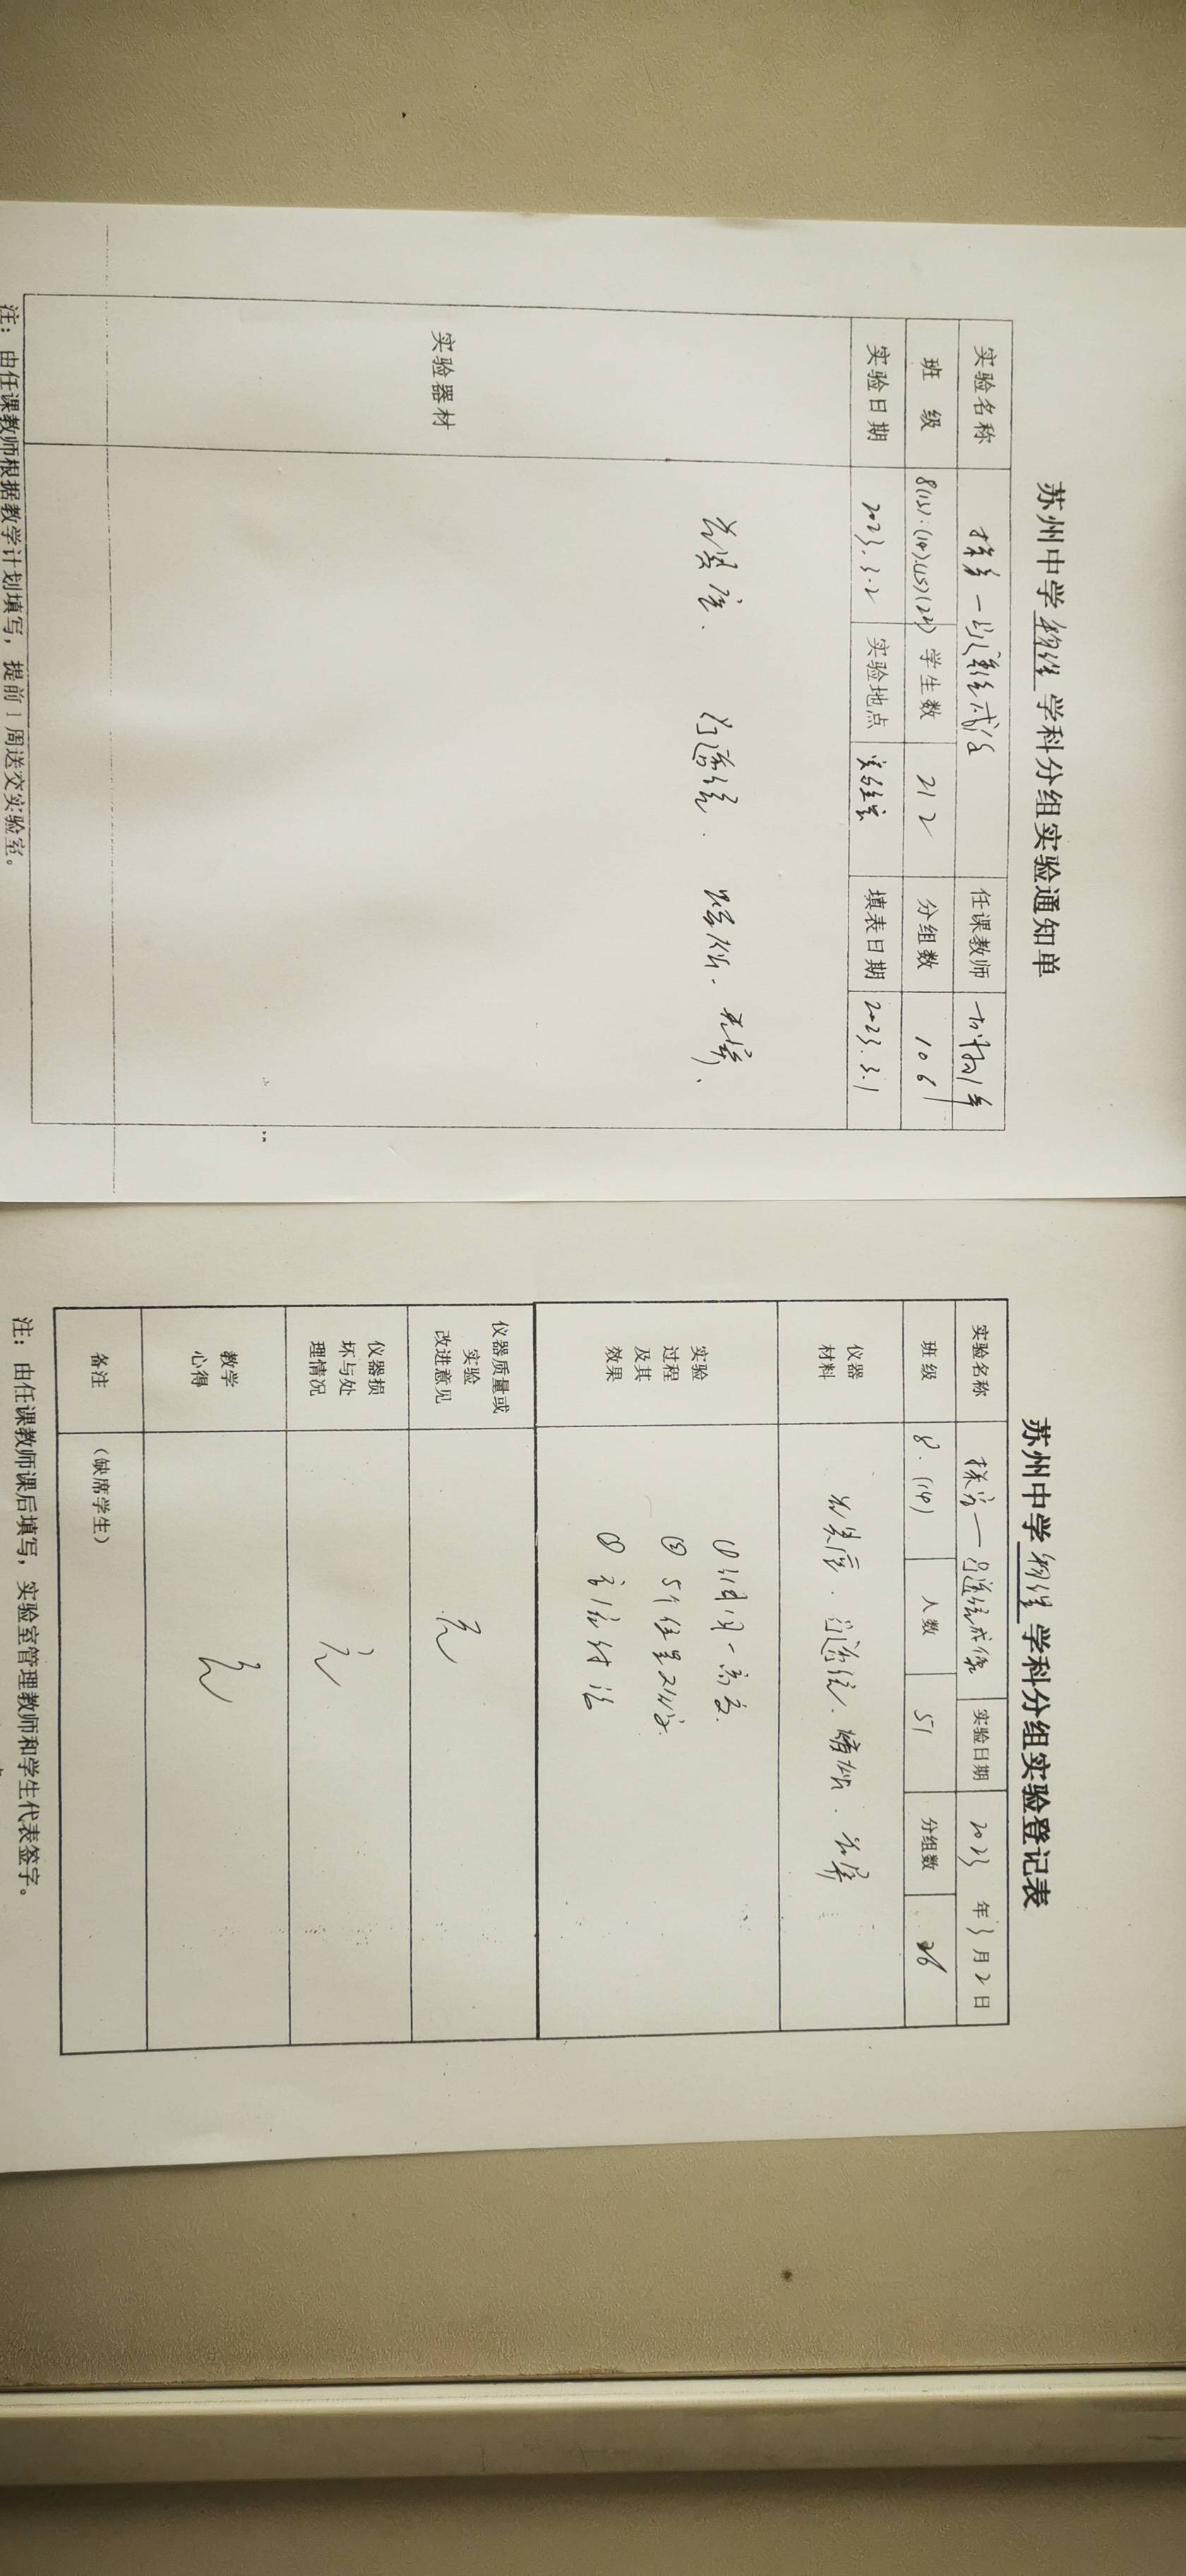 苏州中学物理学科分组实验通知单
实验名称 探究凸透镜成像 任课教师
班级 8(13)(14)(15)(24) 学生数 212 分组数 106
实验日期 2023.3.2 实验地点 实验室 填表日期 2023.3.1
实验器材 光具座、凸透镜、蜡烛、光屏、
注：由任课教师根据教学计划填写，提前1周送交实验室。
苏州中学物理学科分组实验登记表
实验名称 探究凸透镜成像 实验日期 2023年3月2日
班级 8.(14) 人数 51 分组数 26
仪器材料 光具座、凸透镜、蜡烛、光屏
实验过程及其效果
仪器质量或实验改进意见 无
仪器损坏与处理情况 无
教学心得 无
备注 （缺席学生）
注：由任课教师课后填写，实验室管理教师和学生代表签字。